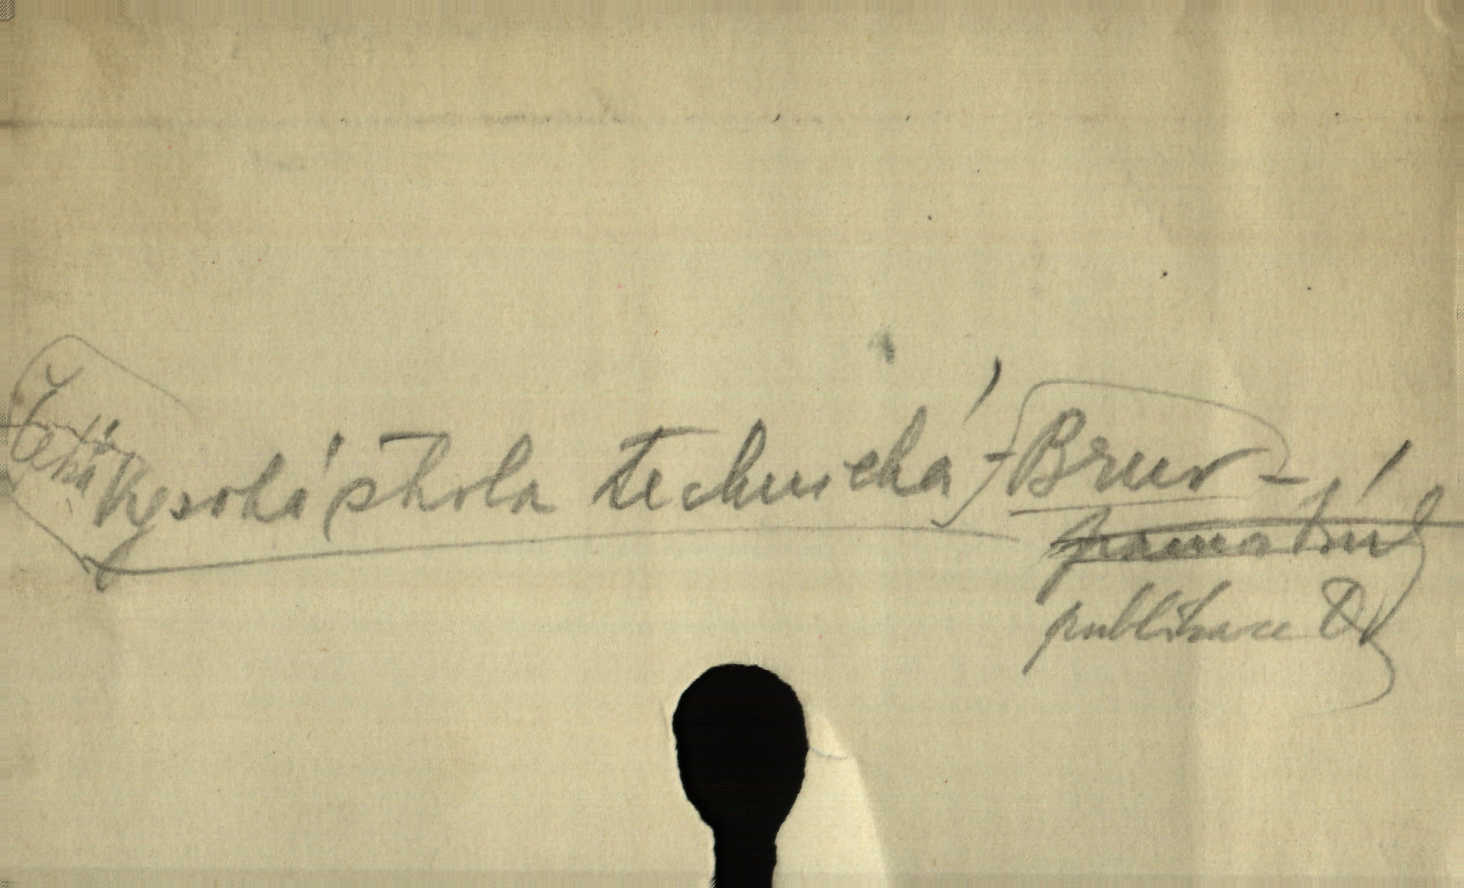 Česká Vysoká škola technická - Brno -
publikace